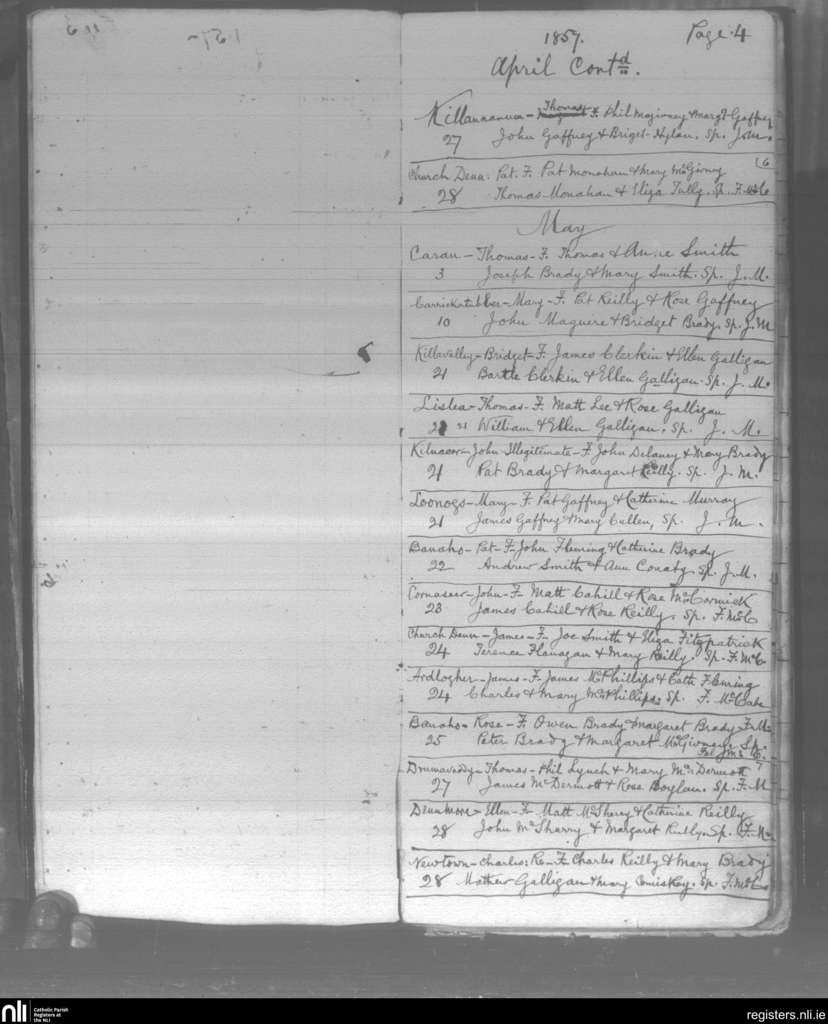 1857.
Page 4
April Contd.
Killannanum - Thomas F. Phil Magivney & Margt Gaffney
27 John Gaffney & Briget Hylan. Sp. J.M.
Church Denn: Pat. F. Pat Monahan & Mary McGivney
28 Thomas Monahan & Eliza Tully. Sp. F. McC
May
Caran - Thomas - F. Thomas & Anne Smith
3 Joseph Brady & Mary Smith. Sp. J. M.
Carrickatubber - Mary - F. Pat Reilly & Rose Gaffney
10 John Maguire & Bridget Brady. Sp. J. M
Killavally - Bridget - F. James Clerkin & Ellen Galligan
21 Bartle Clerkin & Ellen Galligan. Sp. J. M.
Lislea - Thomas - F. Matt Lee & Rose Galligan
21 William & Ellen Galligan. Sp. J. M.
Kilnacor - John Illegitimate - F. John Delaney & Mary Brady
21 Pat Brady & Margaret Reilly. Sp. J. M.
Loonogs - Mary - F. Pat Gaffney & Catherine Murray
21 James Gaffney & Mary Cullen, Sp. J. M.
Banaho - Pat - F. John Fleming & Catherine Brady
22 Andrew Smith & Ann Conaty. Sp. J. M.
Cornaseer - John - F. Matt Cahill & Rose McCormick
23 James Cahill & Rose Reilly. Sp. F. McC
Church Denn - James - F. Joe Smith & Eliza Fitzpatrick
24 Terence Flanagan & Mary Reilly. Sp. F. McC
Ardlogher - James - F. James McPhillips & Cath Fleming
24 Charles & Mary McPhillips Sp. F. McCabe
Banaho - Rose - F. Owen Brady & Margaret Brady F. M.
25 Peter Brady & Margaret McGivney Sp.
Drumavaddy - Thomas - Phil Lynch & Mary McDermott
27 James McDermott & Rose Boylan. Sp. F. M
Denn More - Ellen - F - Matt McSherry & Catherine Reilly
28 John McSharry & Margaret Reilly. Sp. F. M.
Newtown - Charles: Re - F. Charles Reilly & Mary Brady
28 Mathew Galligan & Mary Comiskey. Sp. F. McC
nli
Catholic Parish
Registers at
the NLI
registers.nli.ie